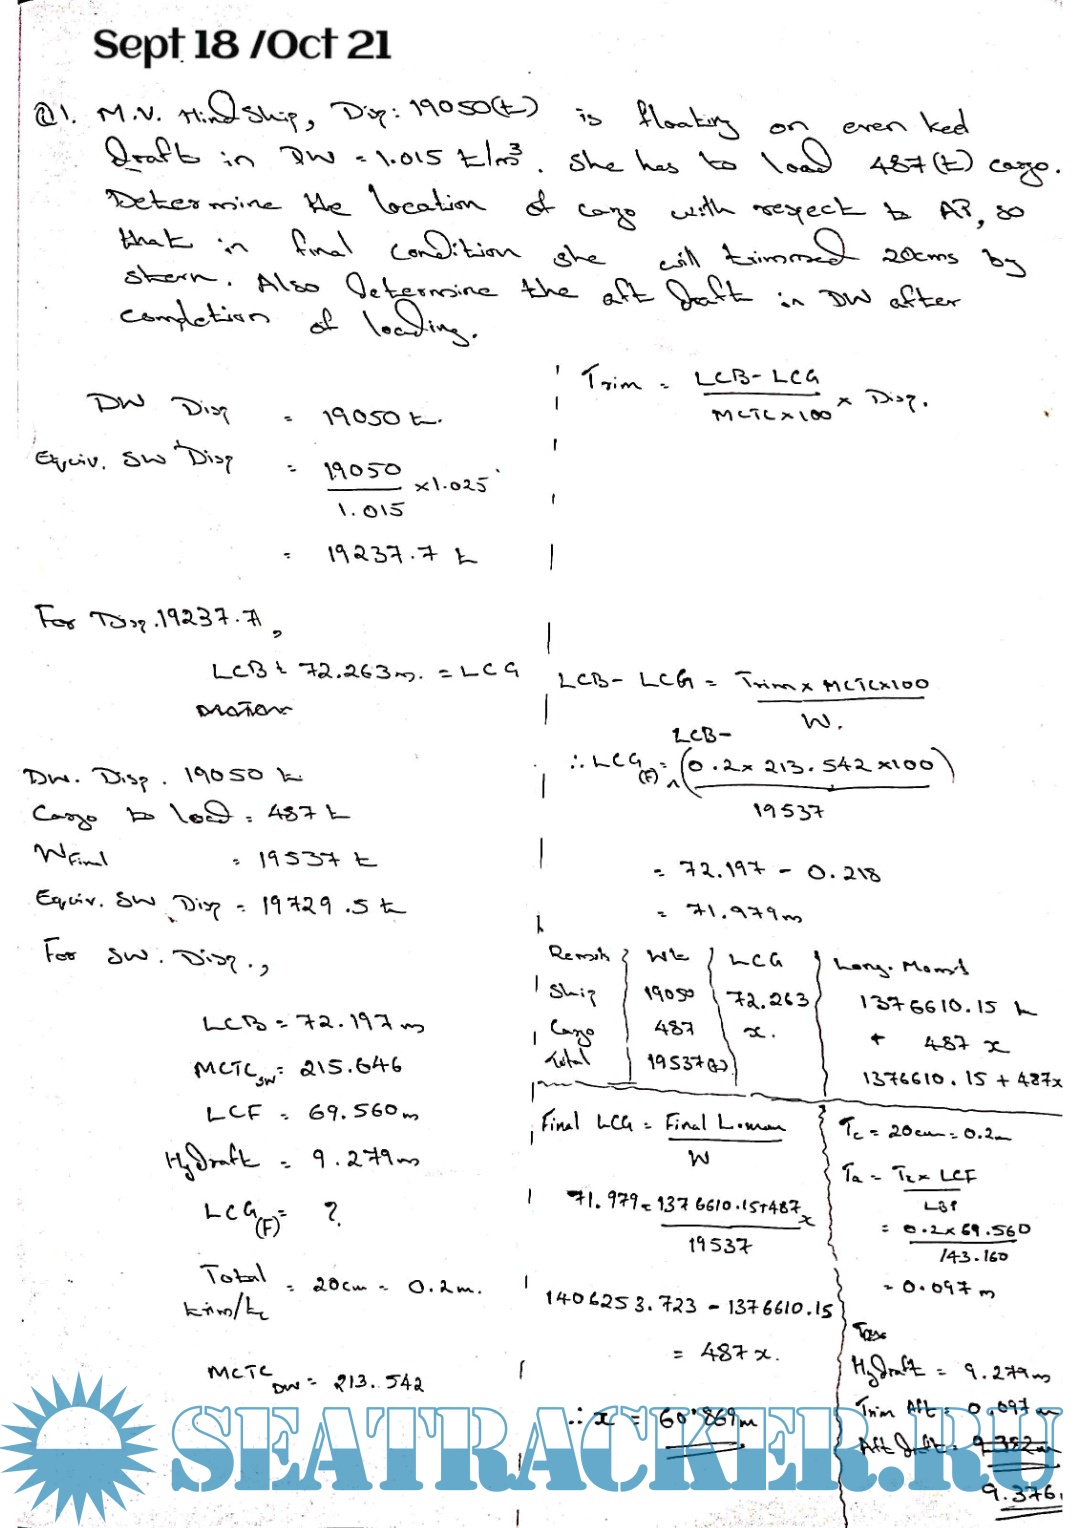 Sept 18 /Oct 21
Q1. M.V. Hindship, Disp: 19050(t) is floating on even keel
draft in DW = 1.015 t/m³. She has to load 487(t) cargo.
Determine the location of cargo with respect to AP, so
that in final condition she will trimmed 20cms by
stern. Also determine the aft draft in DW after
completion of loading.
DW Disp = 19050 t.
Equiv. SW Disp = 19050 / 1.015 × 1.025
= 19237.7 t
For Disp. 19237.7,
LCB = 72.263m. = LCG
DW. Disp. 19050 t
Cargo to load = 487 t
W Final = 19537 t
Equiv. SW Disp = 19729.5 t
For SW. Disp.,
LCB = 72.197 m
MCTC SW = 215.646
LCF = 69.560m
Hydraft = 9.279m
LCG (F) = ?
Total trim/tc = 20cm = 0.2m.
MCTC DW = 213.542
Trim = LCB - LCG / MCTC×100 × Disp.
LCB - LCG = Trim × MCTC×100 / W.
∴ LCG (F) = LCB - (0.2 × 213.542 ×100) / 19537
= 72.197 - 0.218
= 71.979m
Remark Wt LCG Long. Moment
Ship 19050 72.263 1376610.15
Cargo 487 x. + 487 x
Total 19537(t) 1376610.15 + 487x
Final LCG = Final L.mom / W
71.979 = 1376610.15+487x / 19537
1406253.723 - 1376610.15
= 487x.
∴ x = 60.869m
Tc = 20cm = 0.2m
Ta = Tc × LCF / LBP
= 0.2×69.560 / 143.160
= 0.097m
Hydraft = 9.279m
Trim Aft = 0.097m
Aft draft = 9.352m
9.376.
SEATRACKER.RU